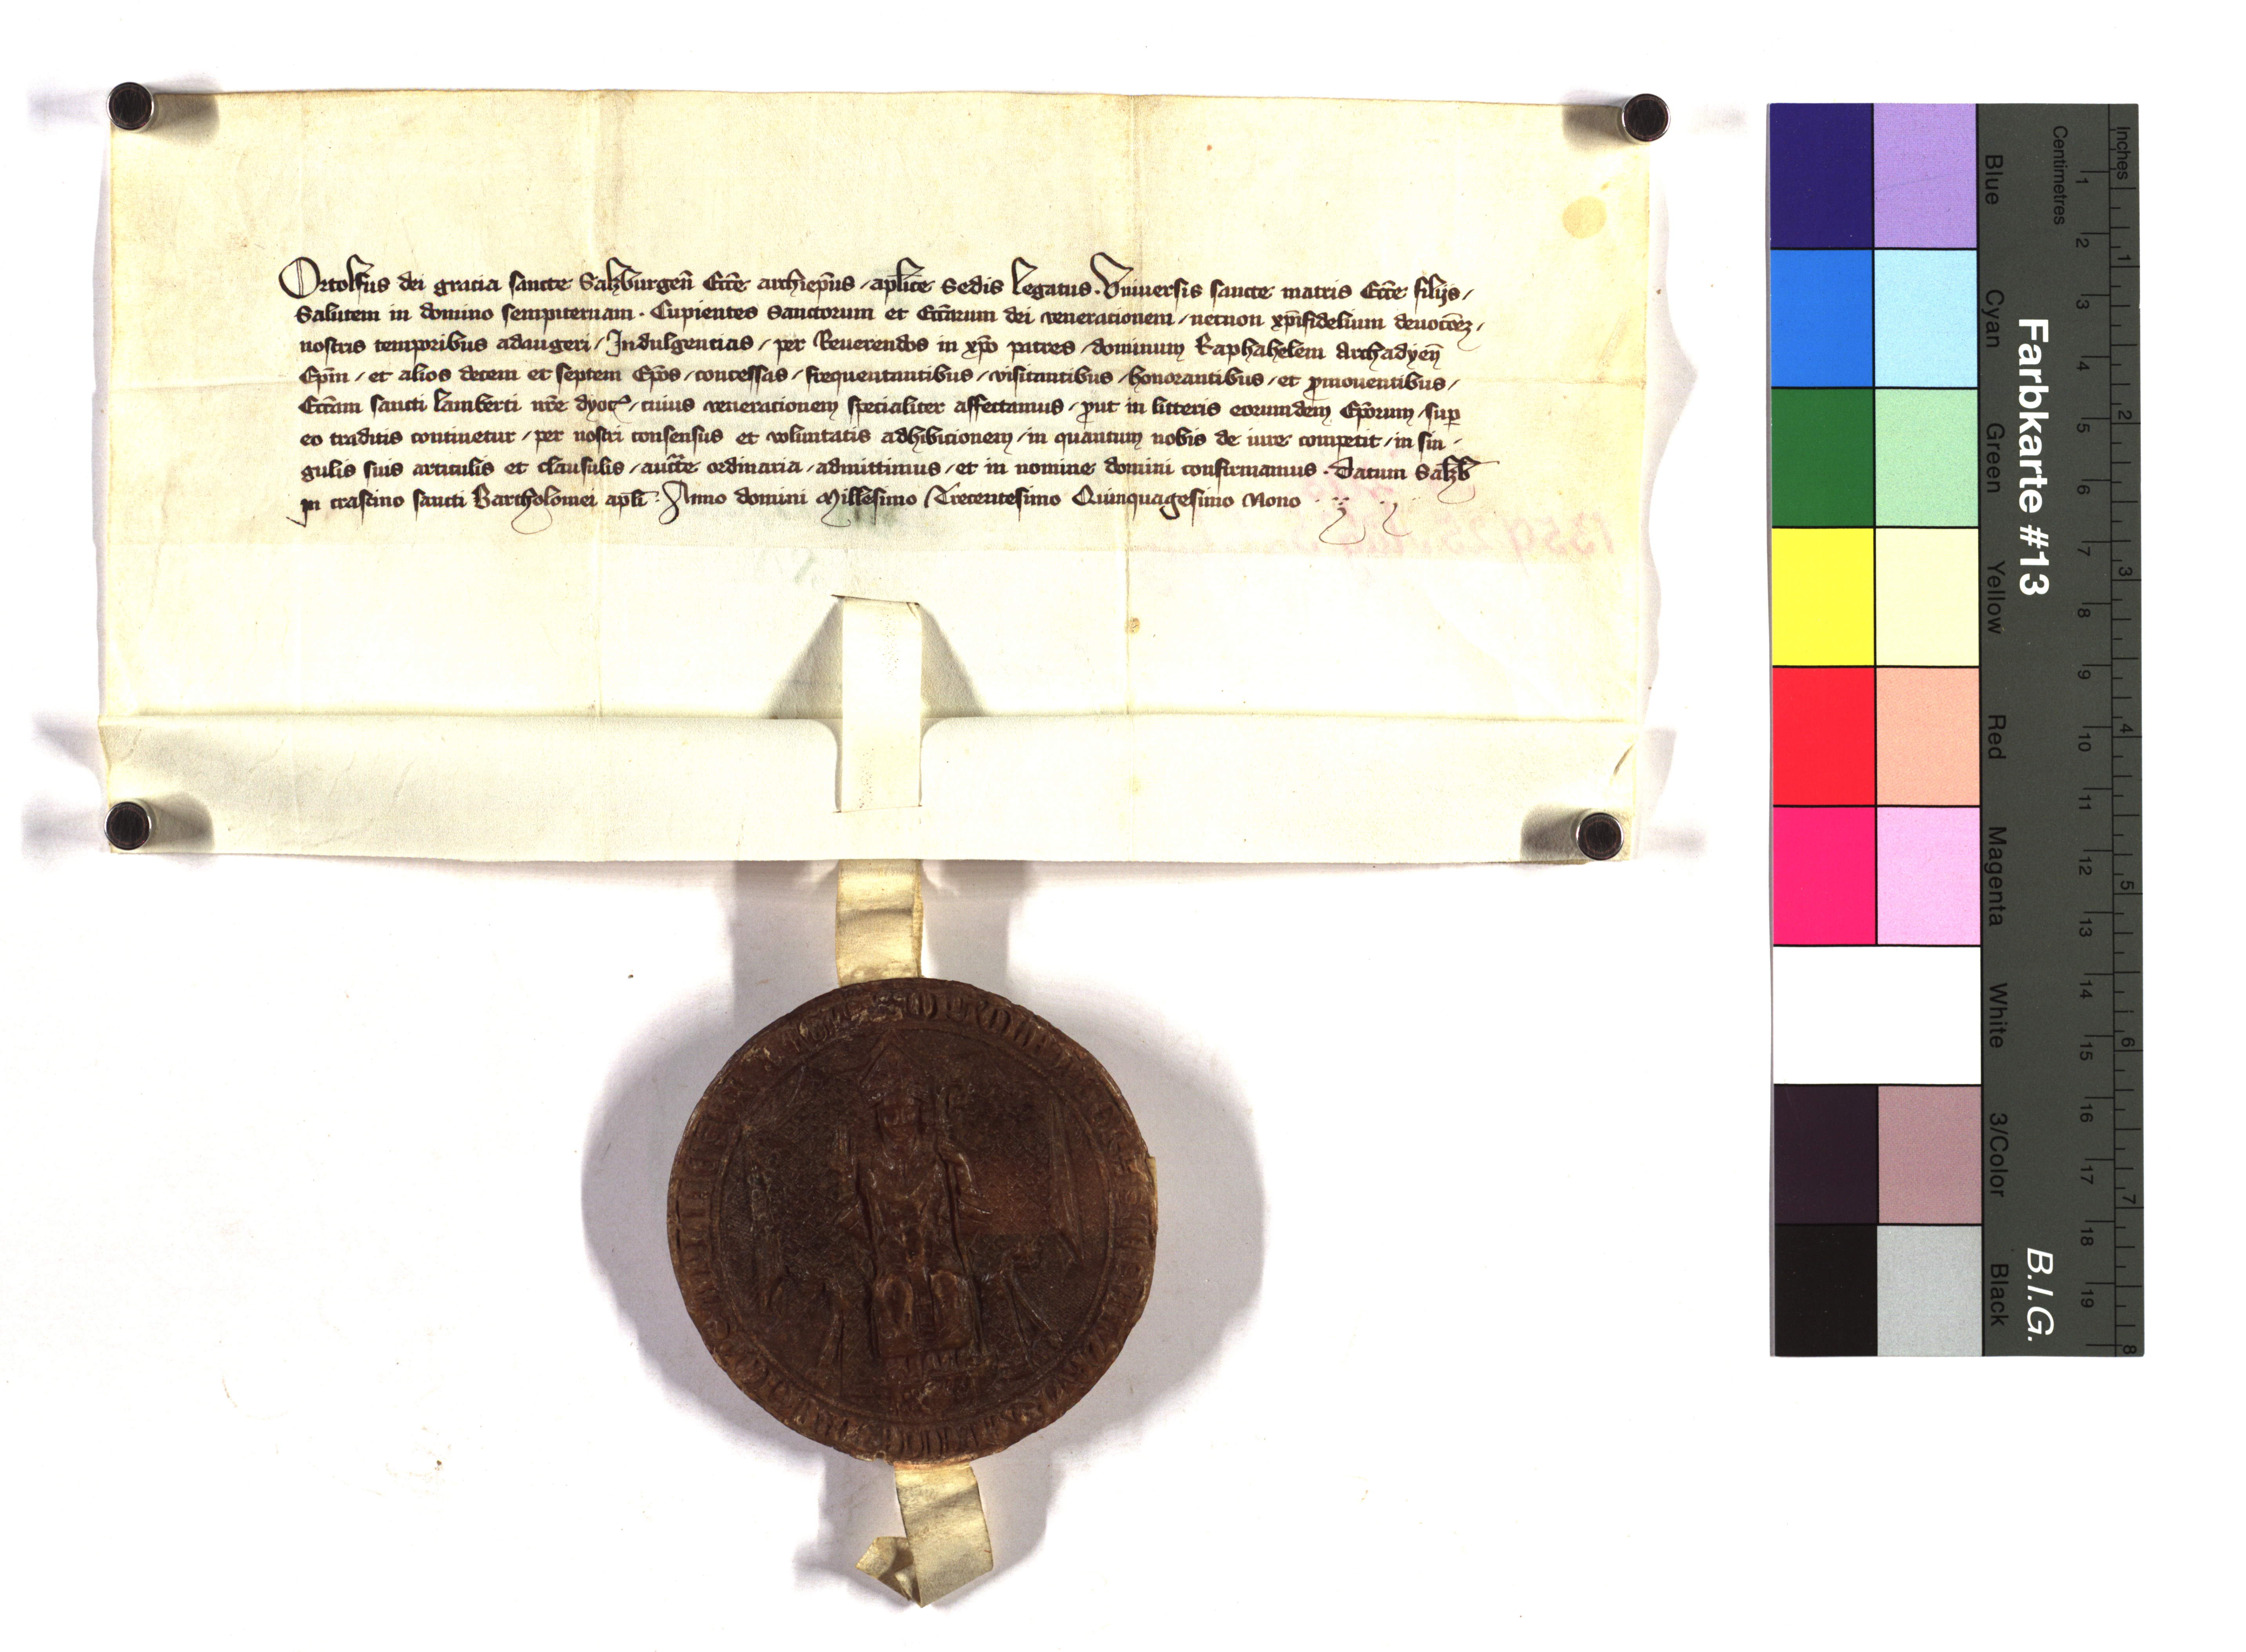 Ortolfus dei gracia sancte Salzburgen̄ Ecc̄e archiep̄us / ap̄lice Sedis Legatus . Vniuersis sancte matris Ecc̄e filijs /
Salutem in domino sempiternam . Cupientes Sanctorum et Ecc̄arum dei veneracionem / necnon xp̄ifidelium deuoc̄oēz /
nostris temporibus adaugeri / Indulgencias / per Reuerendos in xp̄o patres / dominum Raphahelem Archadyen̄
Ep̄m / et alios decem et septem Ep̄os / concessas / frequentantibus / visitantibus / honorantibus / et ꝓmouentibus /
Ecc̄am sancti Lamberti nr̄e dyoc̄ / cuius veneracionem specialiter affectamus / ꝓut in litteris eorundem Ep̄orum / suꝑ
eo traditis continetur / per nostri consensus et voluntatis adhibicionem / in quantum nobis de iure competit / in sin /
gulis suis articulis et clausulis / auct̄e ordinaria / admittimus / et in nomine domini confirmamus . Datum Salzb̄
in crastino sancti Bartholomei apl̄i . Anno domini Millesimo Trecentesimo Quinquagesimo Nono
1359 25
Farbkarte #13
B.I.G.
Blue
Cyan
Green
Yellow
Red
Magenta
White
3/Color
Black
Centimetres
1 2 3 4 5 6 7 8 9 10 11 12 13 14 15 16 17 18 19
Inches
1 2 3 4 5 6 7 8